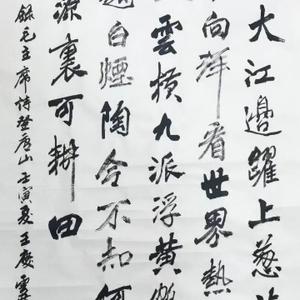 大江邊躍上葱
向洋看世界熱
雲横九派浮黄
白煙陶令不知何
源裏可耕田
錄毛主席詩登廬山壬寅夏王慶雲